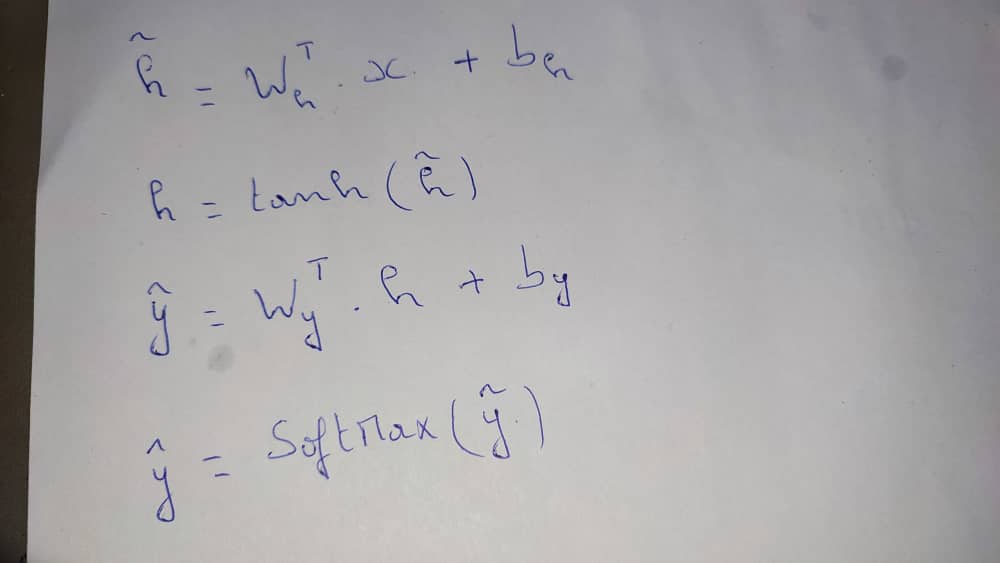 h̃ = W_h^T . x + b_h
h = tanh(h̃)
ỹ = W_y^T . h + b_y
ŷ = SoftMax(ỹ)